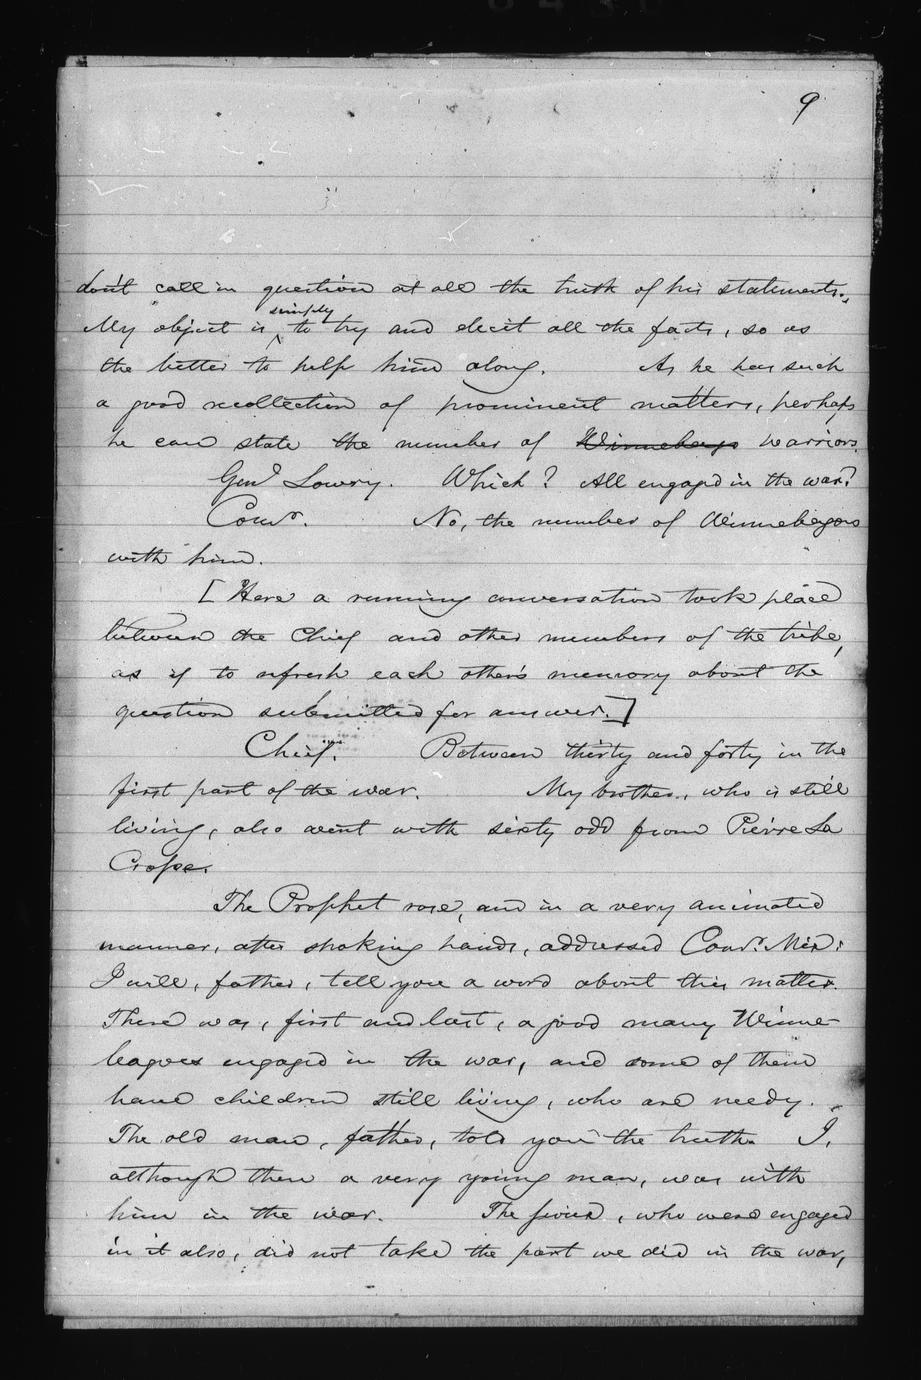 9
don't call in question at all the truth of his statements.
My object is, simply to try and elicit all the facts, so as
the better to help him along. As he has such
a good recollection of prominent matters, perhaps
he can state the number of Winnebago warriors.
Genl Lowry. Which? All engaged in the war?
Comr. No, the number of Winnebagoes
with him.
[Here a running conversation took place
between the Chief and other members of the tribe,
as if to refresh each other's memory about the
question submitted for answer.]
Chief. Between thirty and forty in the
first part of the war. My brother, who is still
living, also went with sixty odd from Pierre La
Crosse.
The Prophet rose, and in a very animated
manner, after shaking hands, addressed Comr. Mix:
I will, father, tell you a word about this matter.
There was, first and last, a good many Winne-
bagoes engaged in the war, and some of them
have children still living, who are needy.
The old man, father, told you the truth. I,
although then a very young man, was with
him in the war. The , who were engaged
in it also, did not take the part we did in the war,